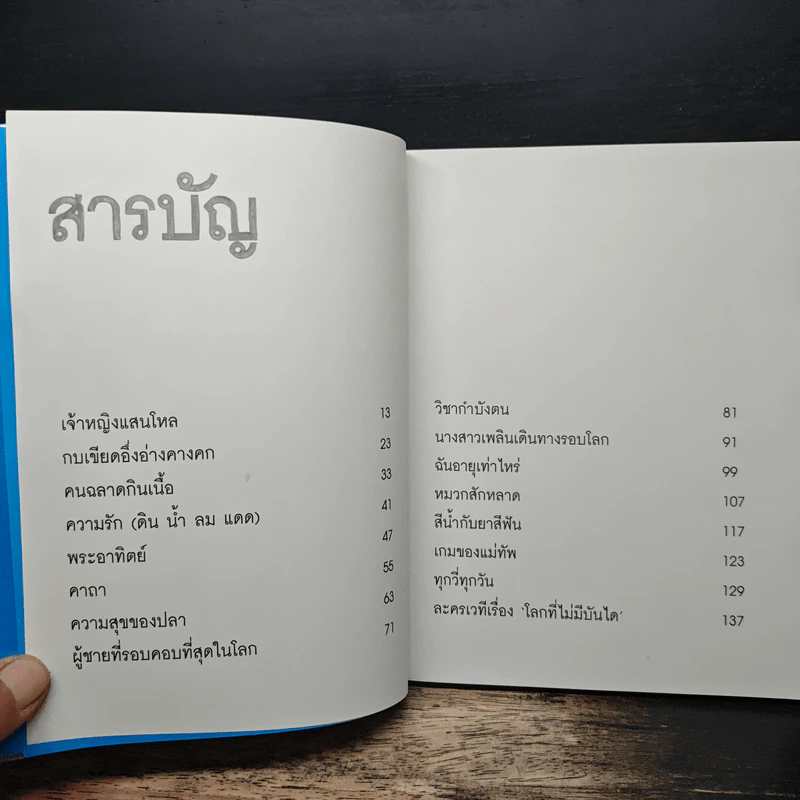 สารบัญ
เจ้าหญิงแสนโหล 13
กบเขียดอึ่งอ่างคางคก 23
คนฉลาดกินเนื้อ 33
ความรัก (ดิน น้ำ ลม แดด) 41
พระอาทิตย์ 47
คาถา 55
ความสุขของปลา 63
ผู้ชายที่รอบคอบที่สุดในโลก 71
วิชากำบังตน 81
นางสาวเพลินเดินทางรอบโลก 91
ฉันอายุเท่าไหร่ 99
หมวกสักหลาด 107
สีน้ำกับยาสีฟัน 117
เกมของแม่ทัพ 123
ทุกวี่ทุกวัน 129
ละครเวทีเรื่อง ‘โลกที่ไม่มีบันได’ 137